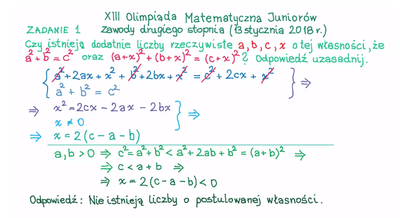 XIII Olimpiada Matematyczna Juniorów
ZADANIE 1 Zawody drugiego stopnia (13 stycznia 2018 r.)
Czy istnieją dodatnie liczby rzeczywiste a, b, c, x o tej własności, że
a²+b²=c² oraz (a+x)²+(b+x)²=(c+x)²? Odpowiedź uzasadnij.
{ a²+2ax+x²+b²+2bx+x²=c²+2cx+x² } ⇒
a²+b²=c²
⇒ x²=2cx-2ax-2bx } ⇒
x≠0
⇒ x=2(c-a-b)
a,b>0 ⇒ c²=a²+b²<a²+2ab+b²=(a+b)² ⇒
⇒ c<a+b ⇒
⇒ x=2(c-a-b)<0
Odpowiedź: Nie istnieją liczby o postulowanej własności.